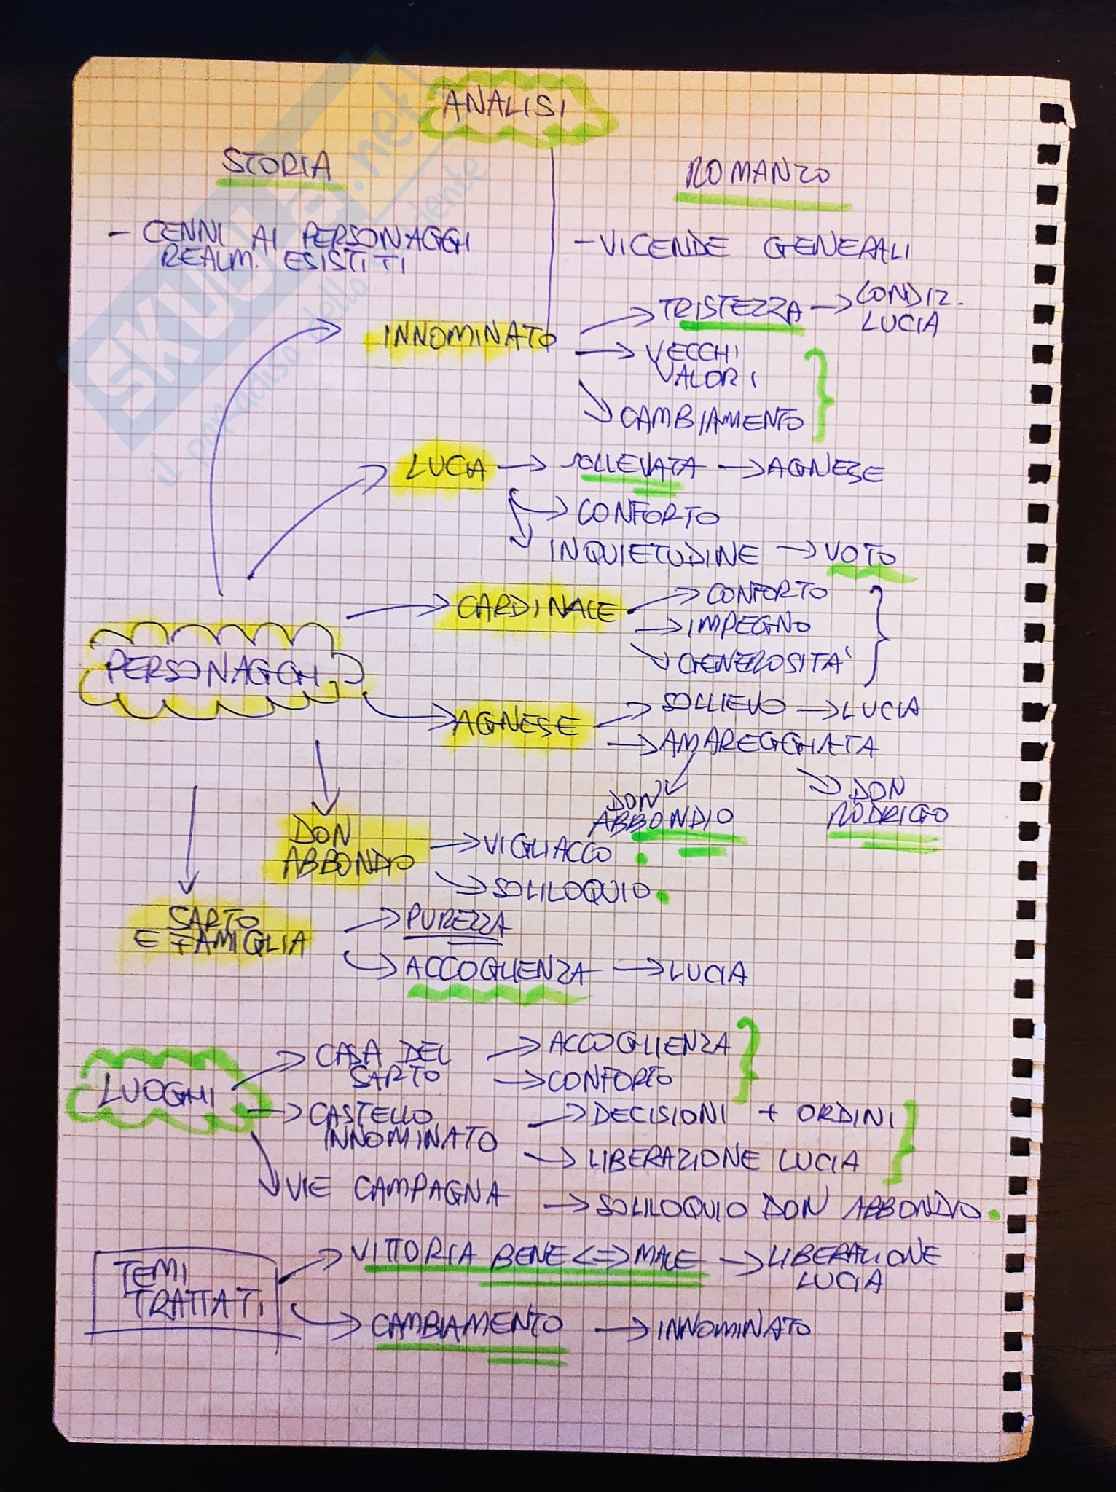 ANALISI
STORIA
ROMANZO
- CENNI AI PERSONAGGI
REALM. ESISTITI
- VICENDE GENERALI
INNOMINATO
TRISTEZZA → CONDIZ.
LUCIA
→ VECCHI
VALORI
CAMBIAMENTO
LUCIA → SOLLEVATA → AGNESE
→ CONFORTO
INQUIETUDINE → VOTO
CARDINALE → CONFORTO
→ IMPEGNO
GENEROSITA'
PERSONAGGI
AGNESE → SOLLIEVO → LUCIA
→ AMAREGGIATA
DON
ABBONDIO
DON
RODRIGO
DON
ABBONDIO
→ VIGLIACCO
→ SOLILOQUIO
SARTO
E FAMIGLIA
→ PUREZZA
→ ACCOGLIENZA → LUCIA
LUOGHI
CASA DEL
SARTO
→ ACCOGLIENZA
→ CONFORTO
→ CASTELLO
INNOMINATO
→ DECISIONI + ORDINI
→ LIBERAZIONE LUCIA
VIE CAMPAGNA → SOLILOQUIO DON ABBONDIO
TEMI
TRATTATI
→ VITTORIA BENE <=> MALE → LIBERAZIONE
LUCIA
→ CAMBIAMENTO → INNOMINATO
SKUOLA.net